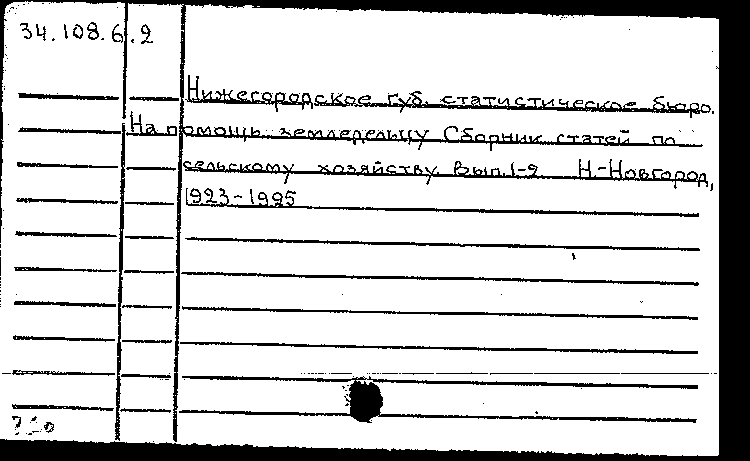 34.108.6.2
Нижегородское губ. статистическое бюро.
На помощь земледельцу Сборник статей по
сельскому хозяйству Вып.1-2 Н.-Новгород,
1923-1925